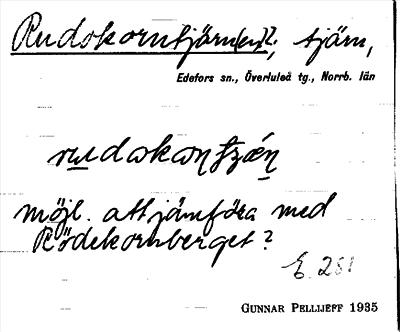 Rudokorntjärn(en)?; tjärn,
Edefors sn., Överluleå tg., Norrb. län
möjl. att jämföra med
Rödekornberget?
E. 281
GUNNAR PELLIJEFF 1935